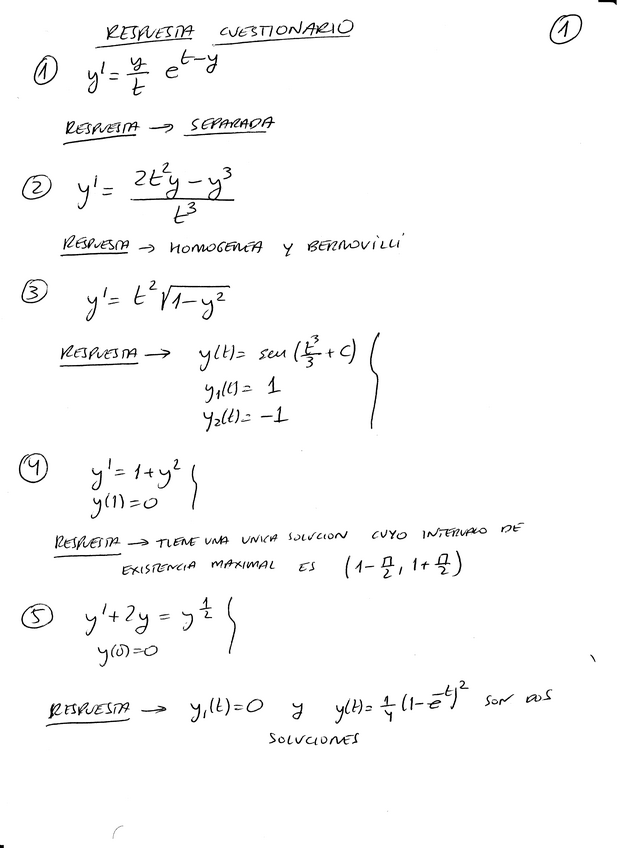 RESPUESTA CUESTIONARIO
1
1 y' = y/t e^(t-y)
RESPUESTA → SEPARADA
2 y' = (2t²y - y³)/t³
RESPUESTA → HOMOGENEA Y BERNOVILLI
3 y' = t²√(1-y²)
RESPUESTA → y(t) = sen(t³/3 + C)
y₁(t) = 1
y₂(t) = -1
4 y' = 1+y²
y(1)=0
RESPUESTA → TIENE UNA UNICA SOLUCION CUYO INTERVALO DE
EXISTENCIA MAXIMAL ES (1-π/2, 1+π/2)
5 y' + 2y = y^(1/2)
y(0)=0
RESPUESTA → y₁(t)=0 y y(t) = 1/4 (1-e^(-t))² SON DOS
SOLUCIONES